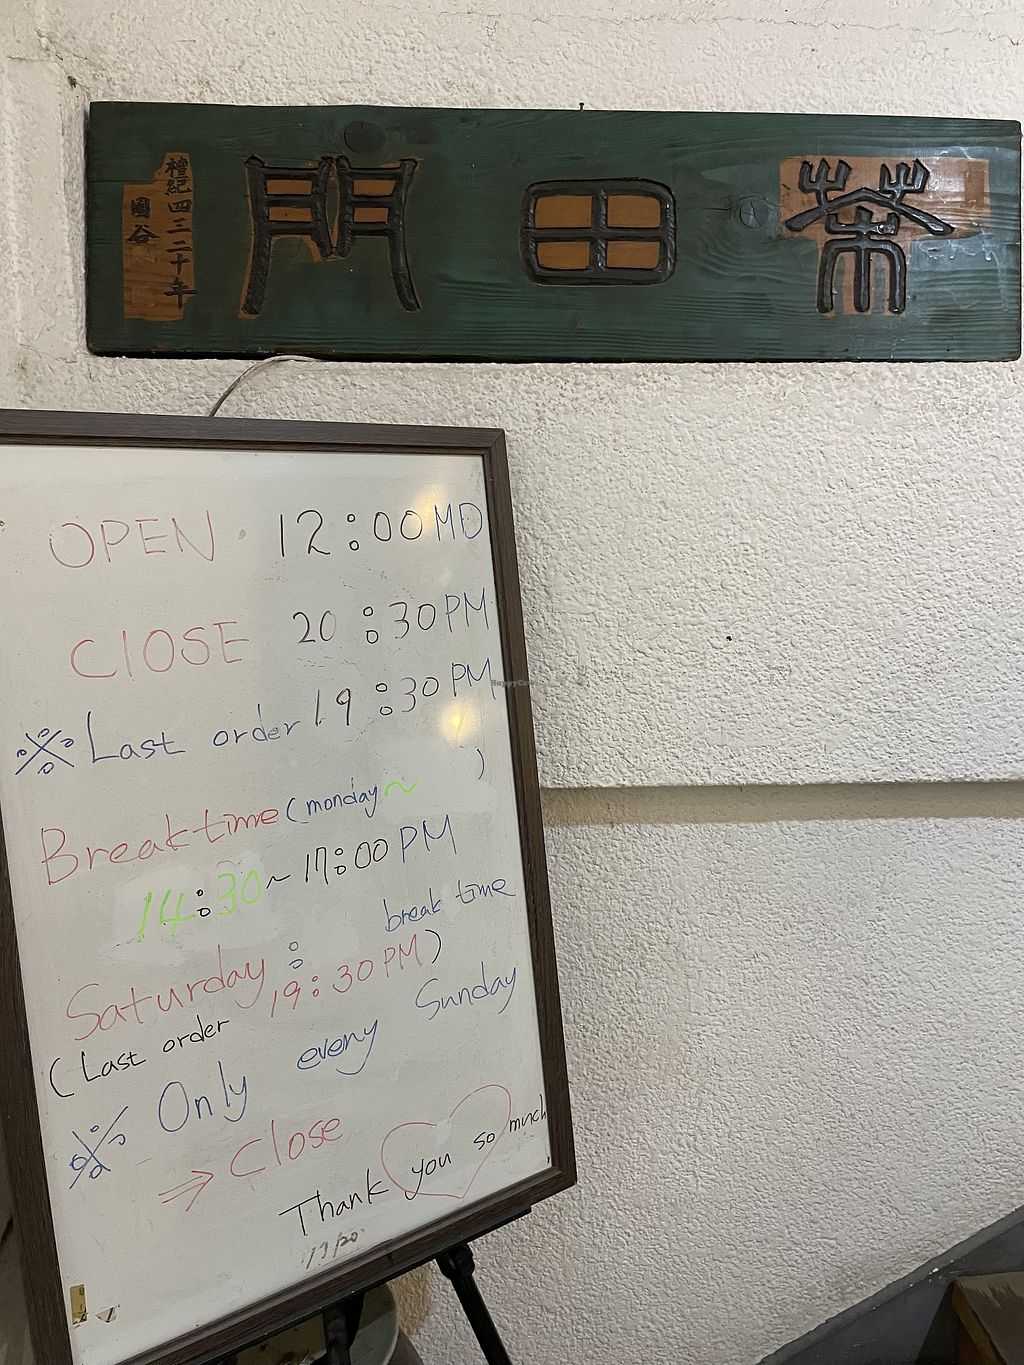 茶田門
檀紀四三二十年
國谷
OPEN 12:00 MD
ClOSE 20:30 PM
※ Last order 19:30 PM
Break time (monday~ )
14:30~17:00 PM
Saturday : break time
(Last order 19:30 PM)
※ Only every Sunday
⇒ close
Thank you so much
HappyCow